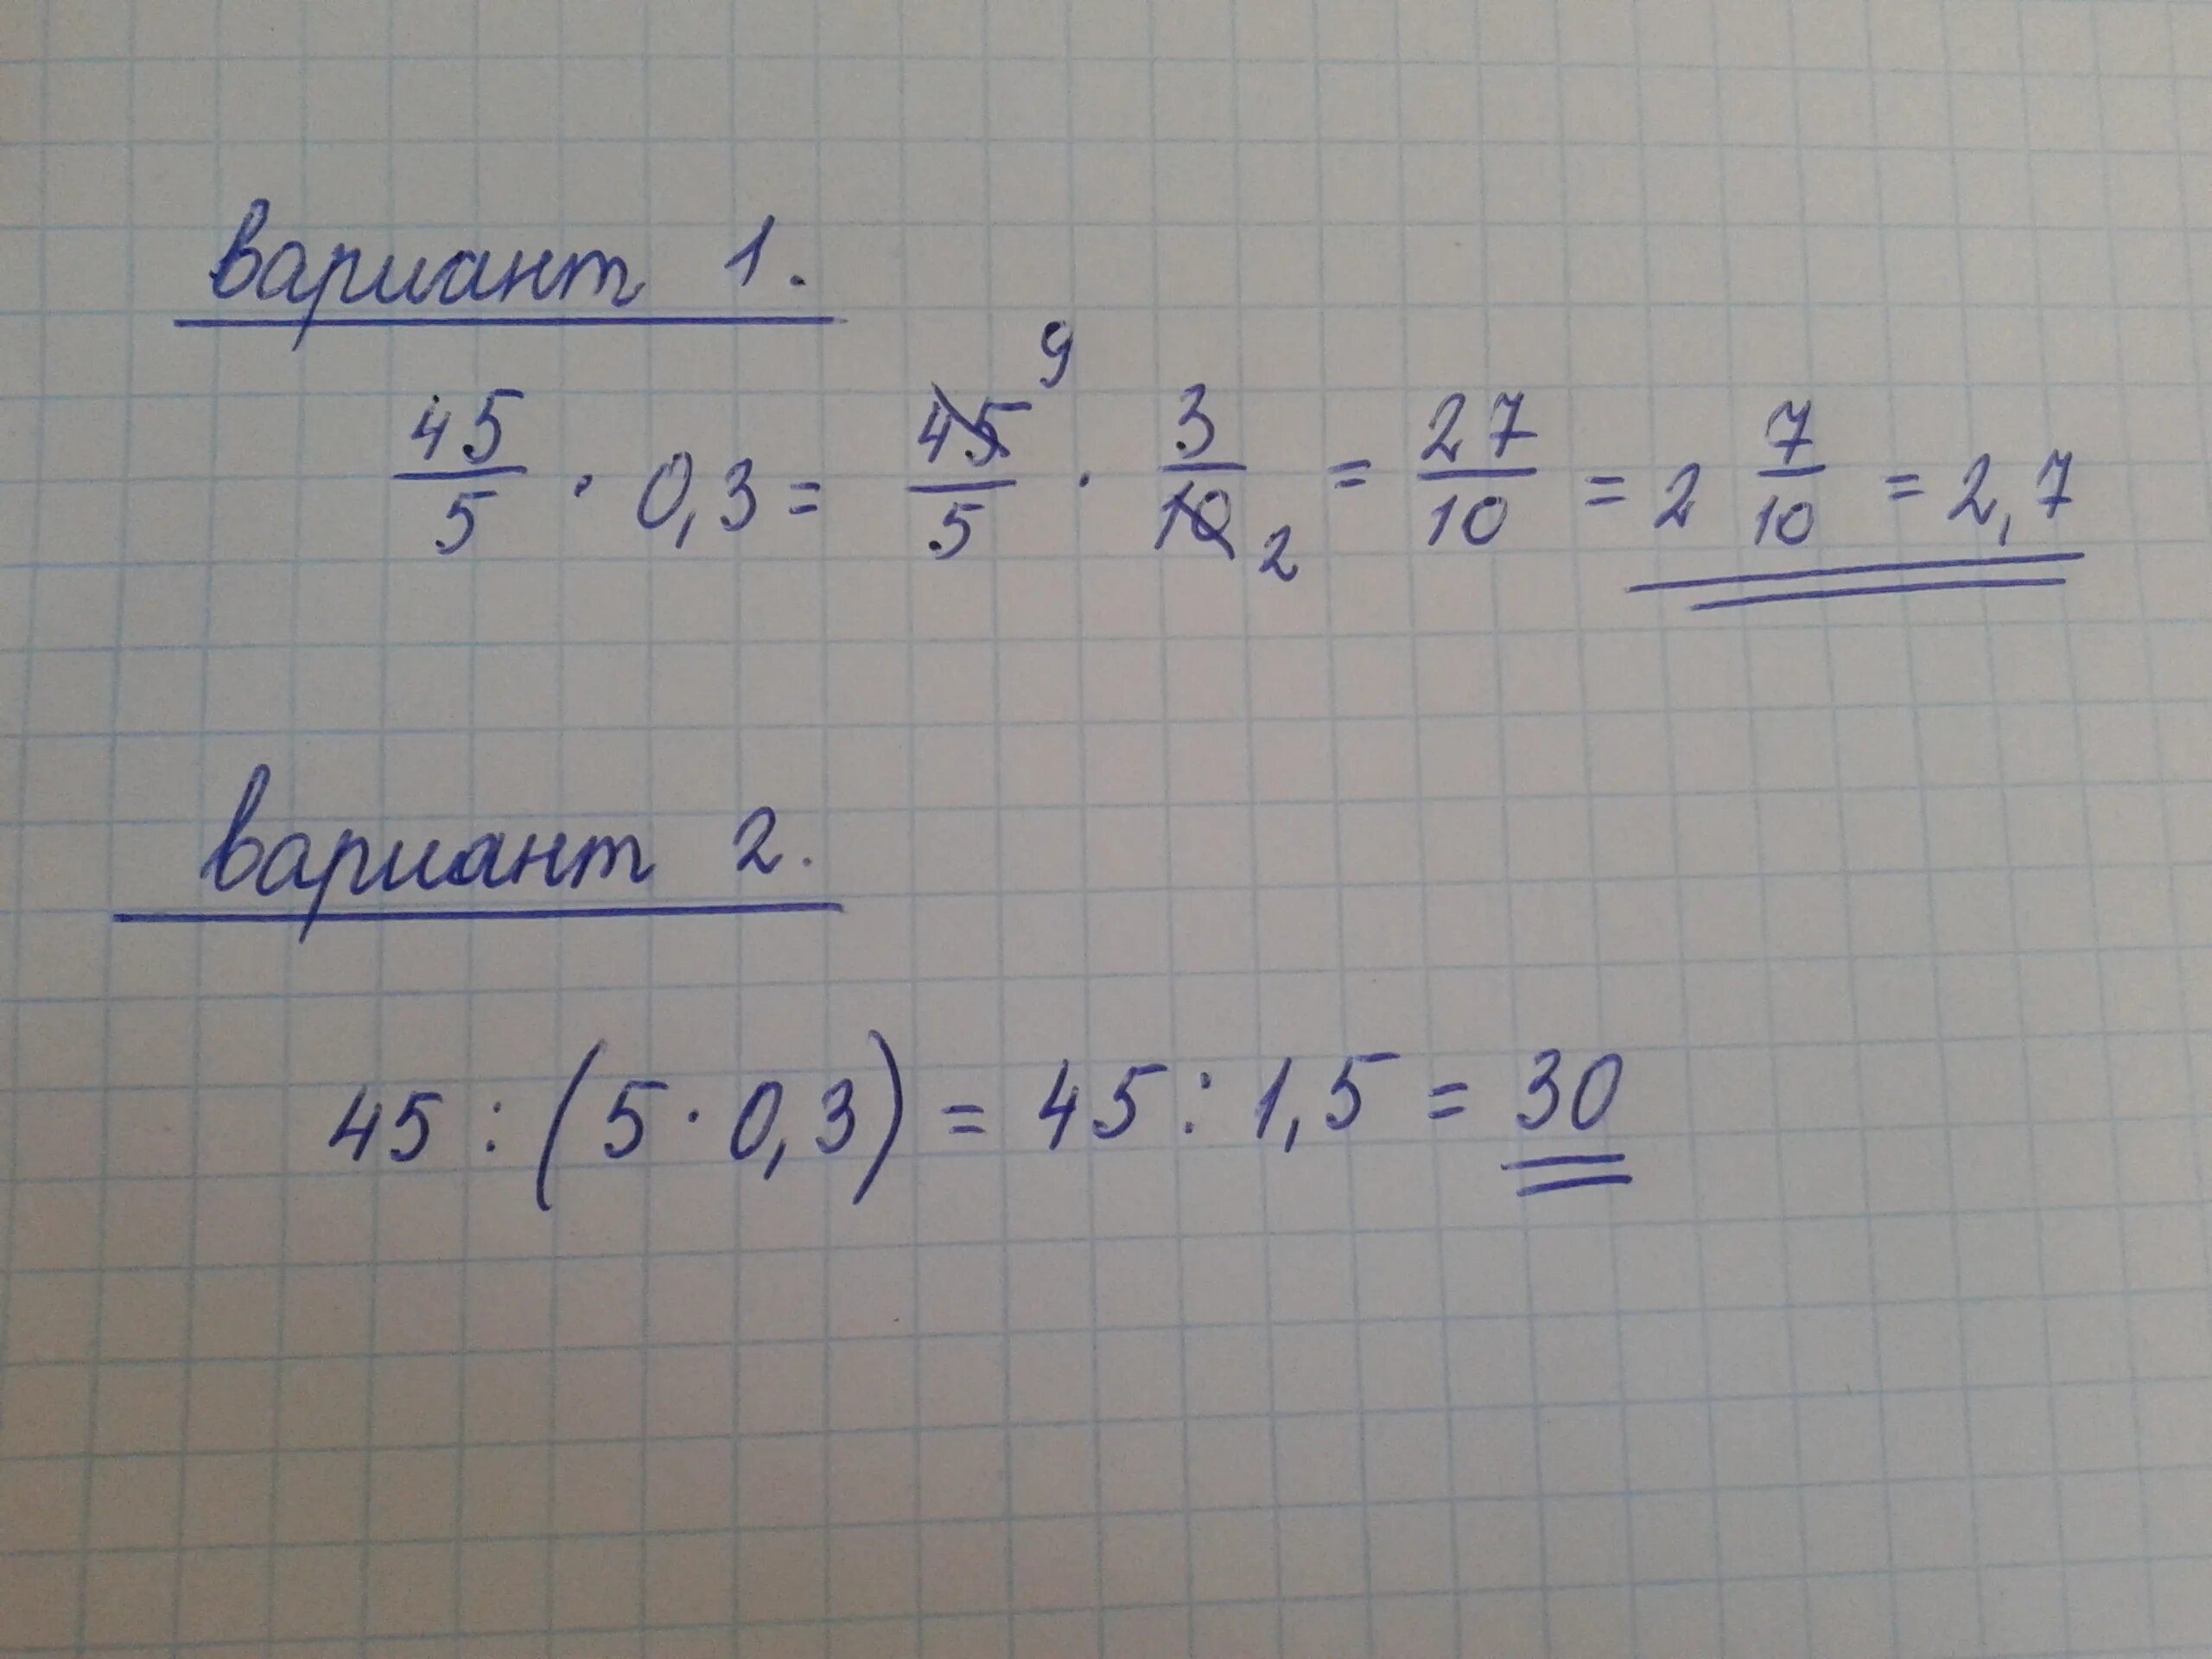 вариант 1.
45/5 · 0,3 = 45/5 · 3/10 = 27/10 = 2 7/10 = 2,7
9
2
вариант 2.
45 : (5 · 0,3) = 45 : 1,5 = 30